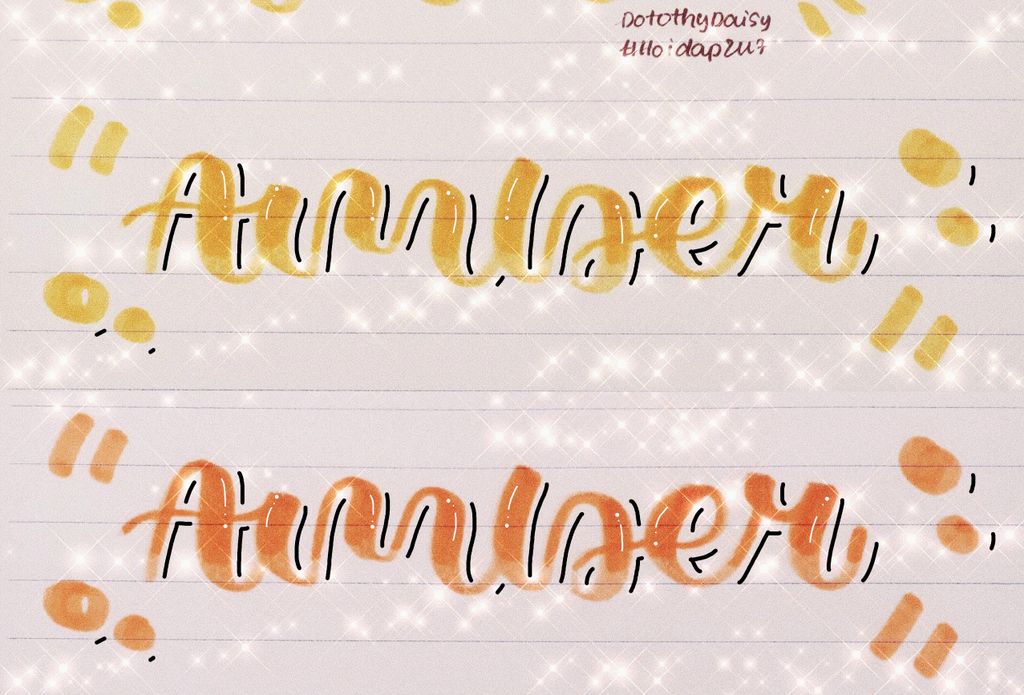 DorothyDaisy
#Hoidap247
Amber
Amber